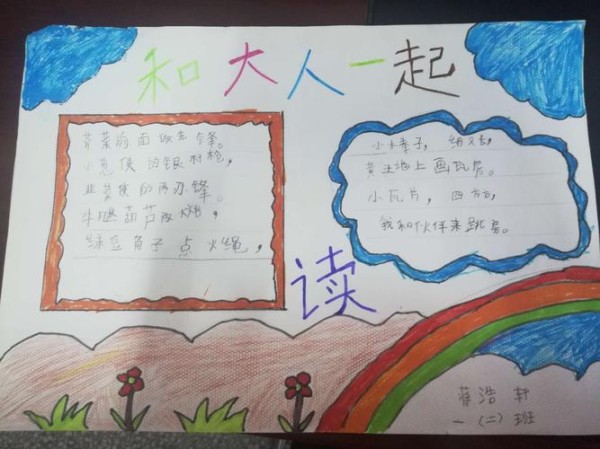 和大人一起
读
芹菜前面做先锋。
小葱使的银杆枪,
韭菜使的两刃锋。
牛腿葫芦放火炮,
绿豆角子点火绳,
小木棒子,细又长,
黄土地上画瓦房。
小瓦片,四方方,
我和伙伴来跳房。
浩轩
一(二)班